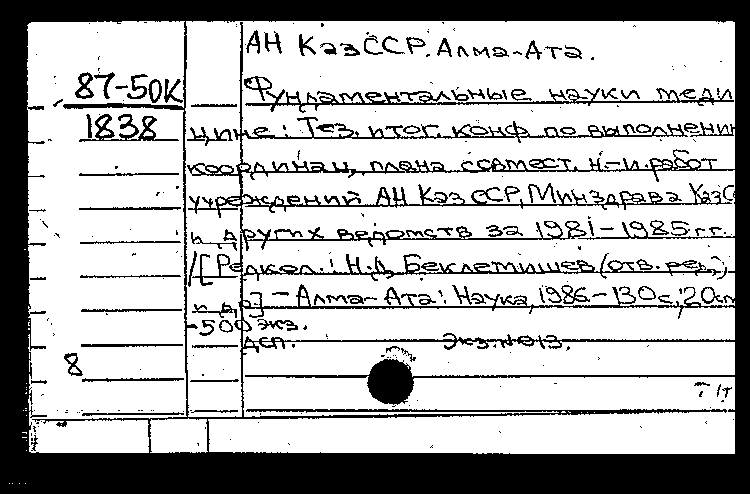 АН КазССР. Алма-Ата.
87-50К
1838
Фундаментальные науки меди
цине: Тез. итог. конф по выполнени
координац. плана совмест. н-и. работ
учреждений АН КазССР, Минздрава КазС
и других ведомств за 1981-1985 г.г.
/[Редкол.: Н.Д. Беклемишев (отв. ред.)
и др.] - Алма-Ата: Наука, 1986 - 130 с.; 20 см
-500 экз.
ДСП. Экз. № 013.
8